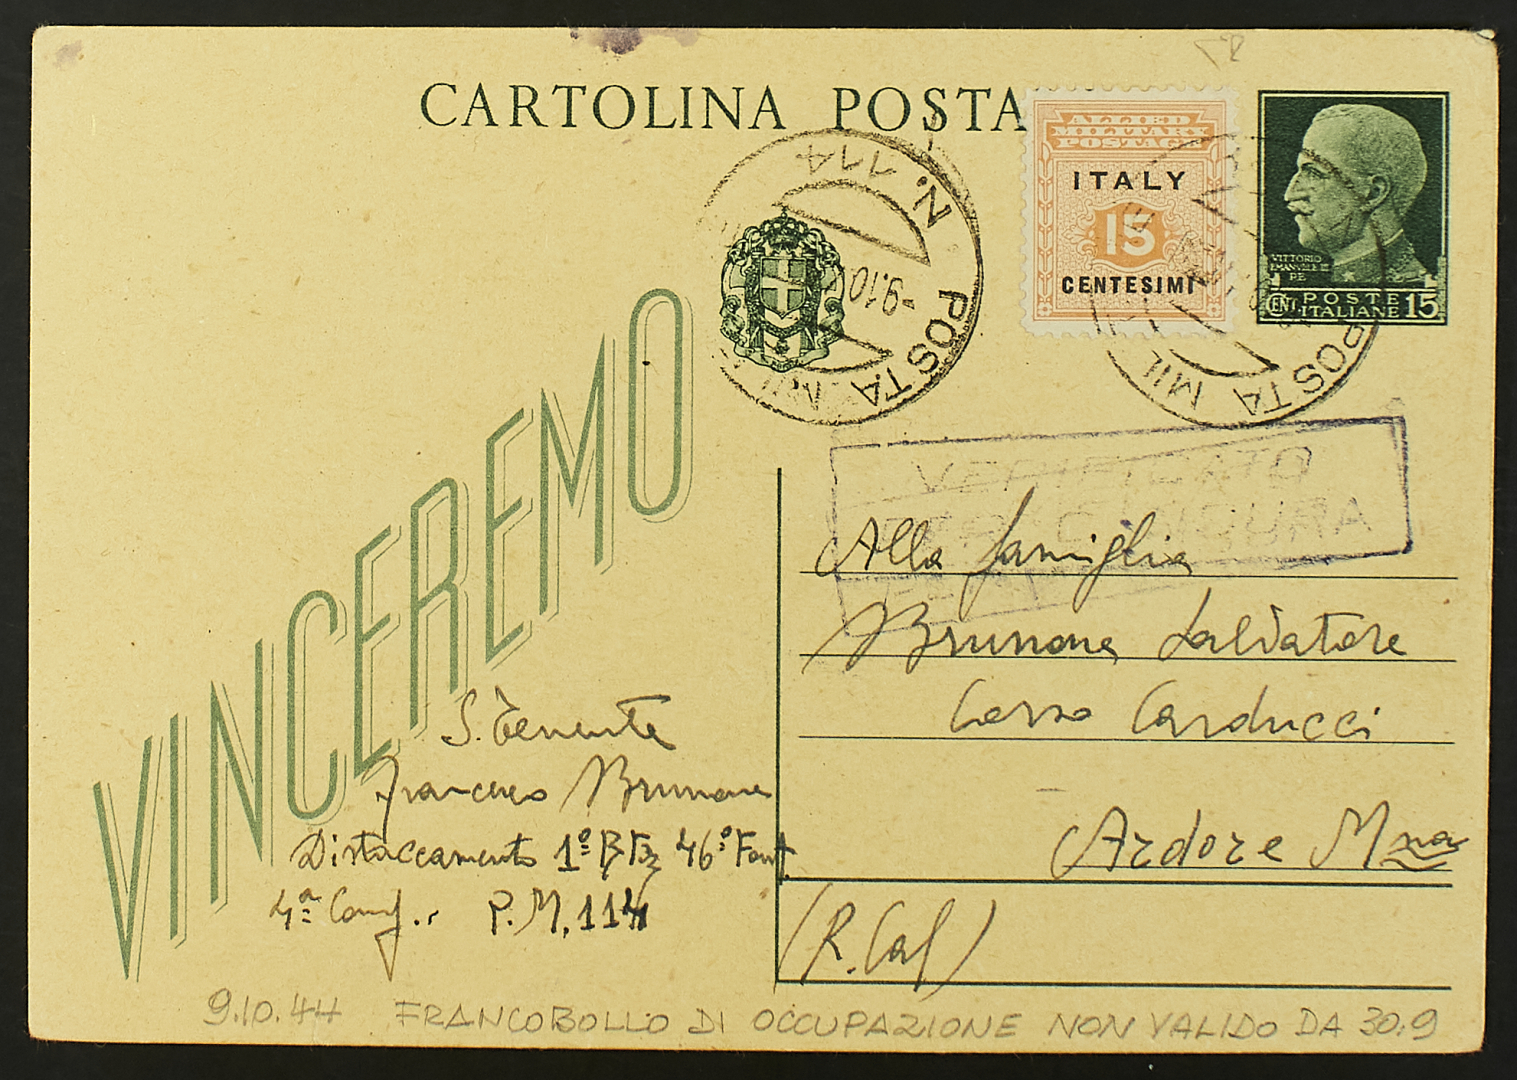 CARTOLINA POSTA
ALLIED
MILITARY
POSTAGE
ITALY
15
CENTESIMI
VITTORIO
EMANVELE III
RE
CENT. POSTE
ITALIANE 15
POSTA MIL N. 114
-9.10
POSTA MIL
VERIFICATO
PER CENSURA
VINCEREMO
Alla famiglia
Brunone Salvatore
Corso Carducci
Ardore Mna
(R. Cal)
S. Tenente
Francesco Brunone
Distaccamento 1º Btg 46º Fant.
4ª Comp. P.M. 114
9.10.44 FRANCOBOLLO DI OCCUPAZIONE NON VALIDO DA 30.9